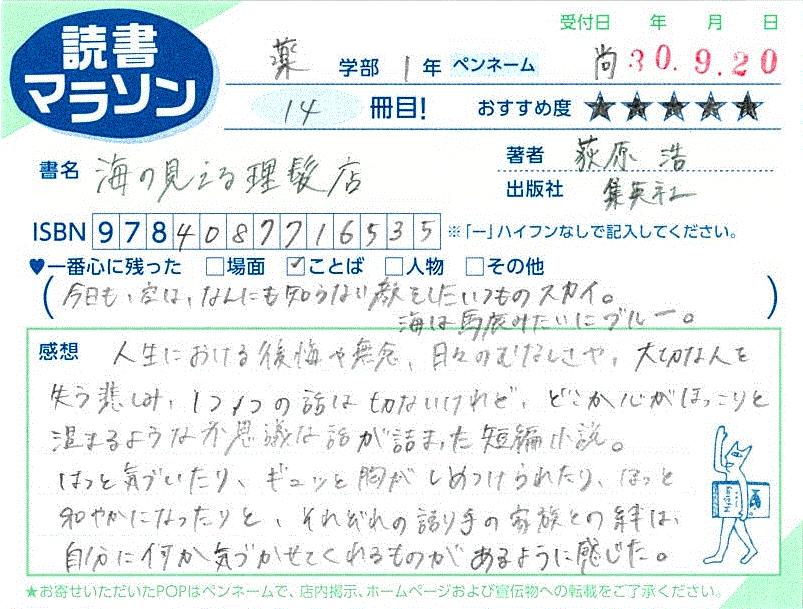 読書
マラソン
受付日 年 月 日
薬 学部 1 年 ペンネーム 尚 30.9.20
14 冊目! おすすめ度 ★★★★★
書名 海の見える理髪店
著者 荻原 浩
出版社 集英社
ISBN 9784087716535 ※「ー」ハイフンなしで記入してください。
♥一番心に残った □場面 ☑ことば □人物 □その他
(今日も、空は、なんにも知らない顔をしたいつものスカイ。
海は馬鹿みたいにブルー。)
感想 人生における後悔や無念、日々のむなしさや、大切な人を
失う悲しみ、1つ1つの話は切ないけれど、どこか心がほっこりと
温まるような不思議な話が詰まった短編小説。
はっと気づいたり、ギュッと胸がしめつけられたり、ほっと
和やかになったりと、それぞれの語り手の家族との絆は、
自分に何か気づかせてくれるものがあるように感じた。
★お寄せいただいたPOPはペンネームで、店内掲示、ホームページおよび宣伝物への転載をご了承ください。